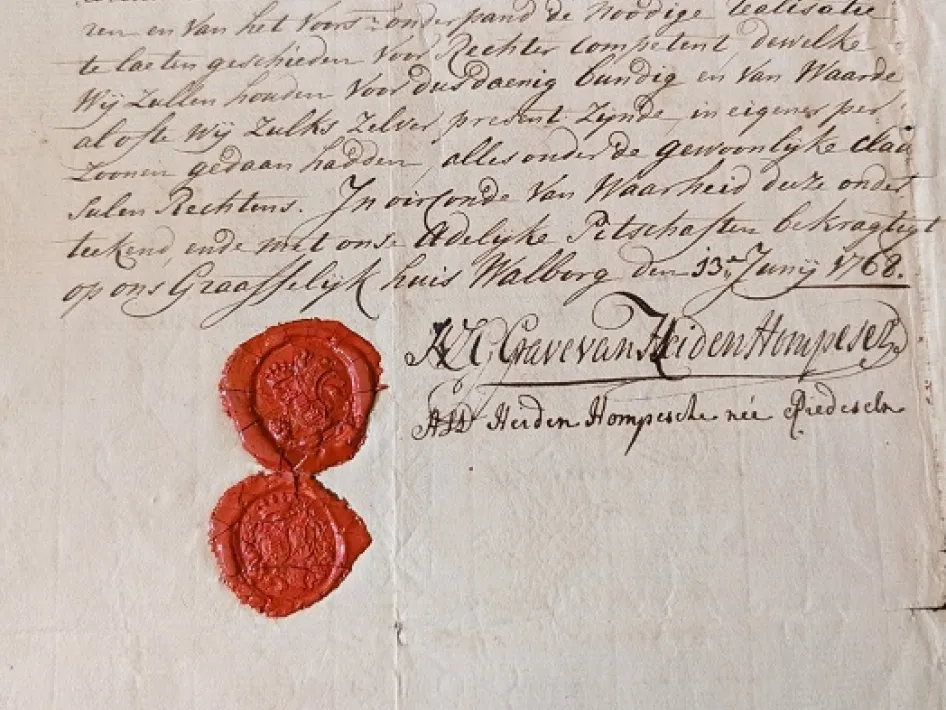 ren en van het voors: onderpand de noodige realisatie
te laeten geschieden voor Rechter Competent, dewelke
Wij Zullen houden voor dusdaenig bundig en van Waarde
alofte Wij Zulks Zelver present Zijnde, in eigener per,
Zoonen gedaan hadden, alles onder de gewoonlijke Clau
sulen Rechtens. In oirconde van Waarheid deeze onder
teekend, ende met onse Adelijke Pitschaften bekragtigt
op ons Graaffelijk huis Walborg den 13en Junij 1768.
Grave van Heiden Hompesch
Heiden Hompesche née Riedeseln